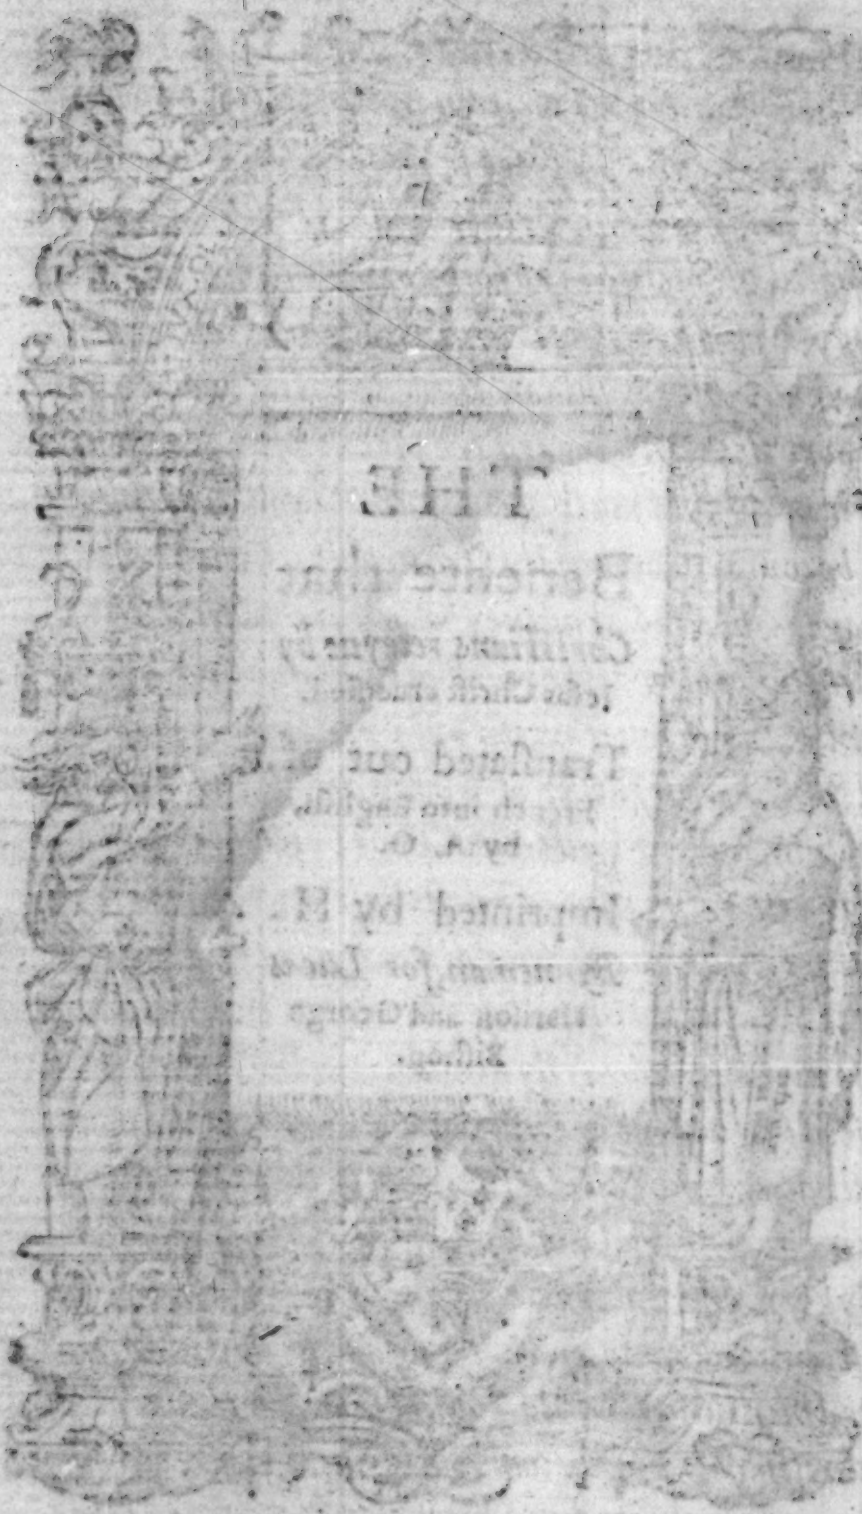 THE
Benefite that
Christians receyue by
Iesus Christ crucified.
Translated out of
French into English,
by A. G.
Imprinted by H.
Bynneman, for Lucas
Harison and George
Bishop.